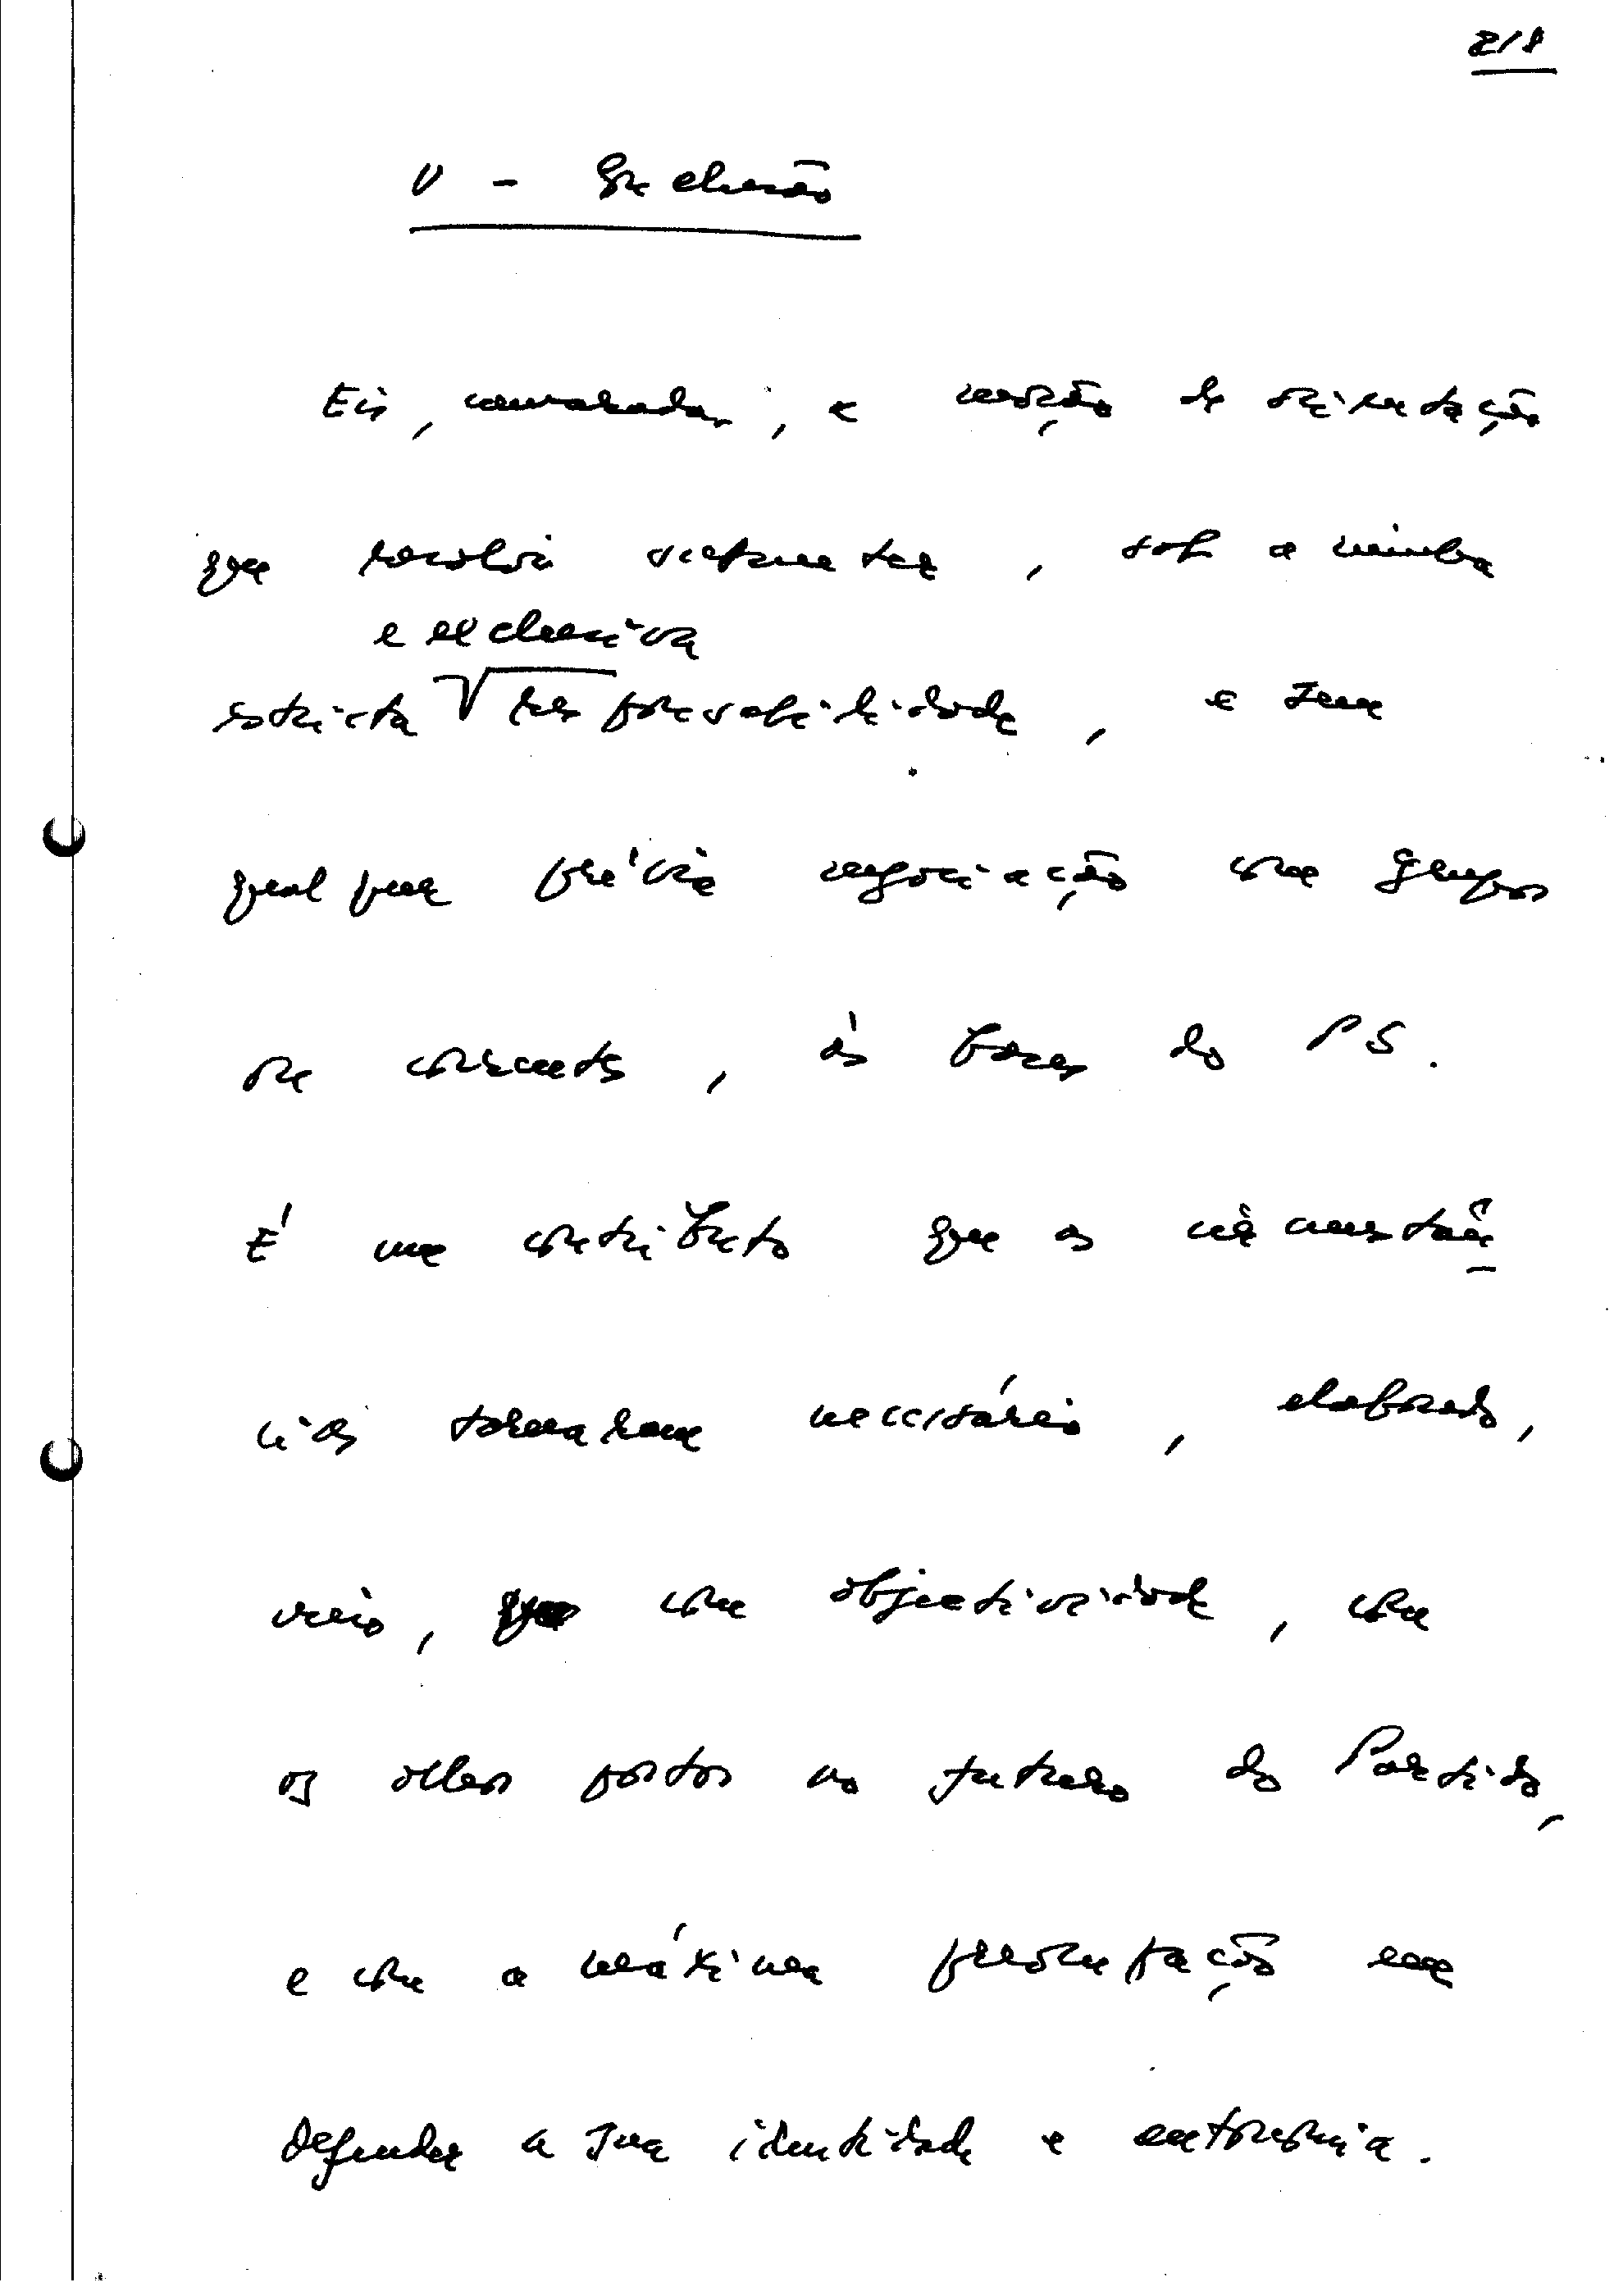 218
V - Conclusão
Eis, camaradas, a moção de orientação
que resolvi apresentar, sob a minha
e exclusiva
estricta responsabilidade, e sem
qualquer prévia negociação com grupos
ou correntes, às bases do PS.
É um contributo que as circunstân
cias tornaram necessário, elaborado,
creio, com objectividade, com
os olhos postos no futuro do Partido,
e com a máxima preocupação em
defender a sua identidade e autonomia.